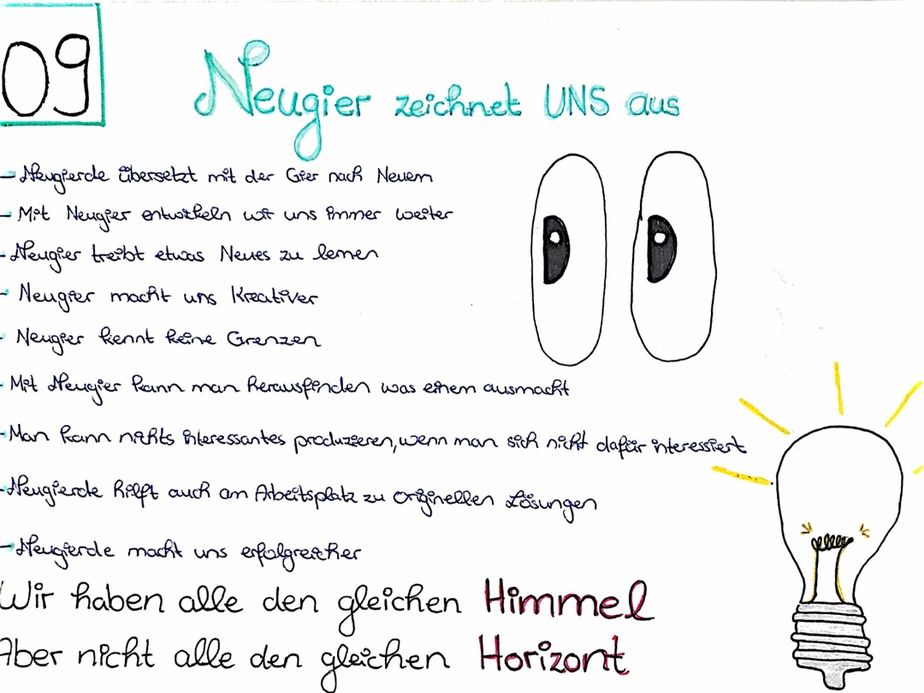 09
Neugier zeichnet UNS aus
- Neugierde übersetzt mit der Gier nach Neuem
- Mit Neugier entwickeln wir uns immer weiter
- Neugier treibt etwas Neues zu lernen
- Neugier macht uns Kreativer
- Neugier kennt keine Grenzen
- Mit Neugier kann man herausfinden was einem ausmacht
- Man kann nichts interessantes produzieren, wenn man sich nicht dafür interessiert
- Neugierde hilft auch am Arbeitsplatz zu originellen Lösungen
- Neugierde macht uns erfolgreicher
Wir haben alle den gleichen Himmel
Aber nicht alle den gleichen Horizont